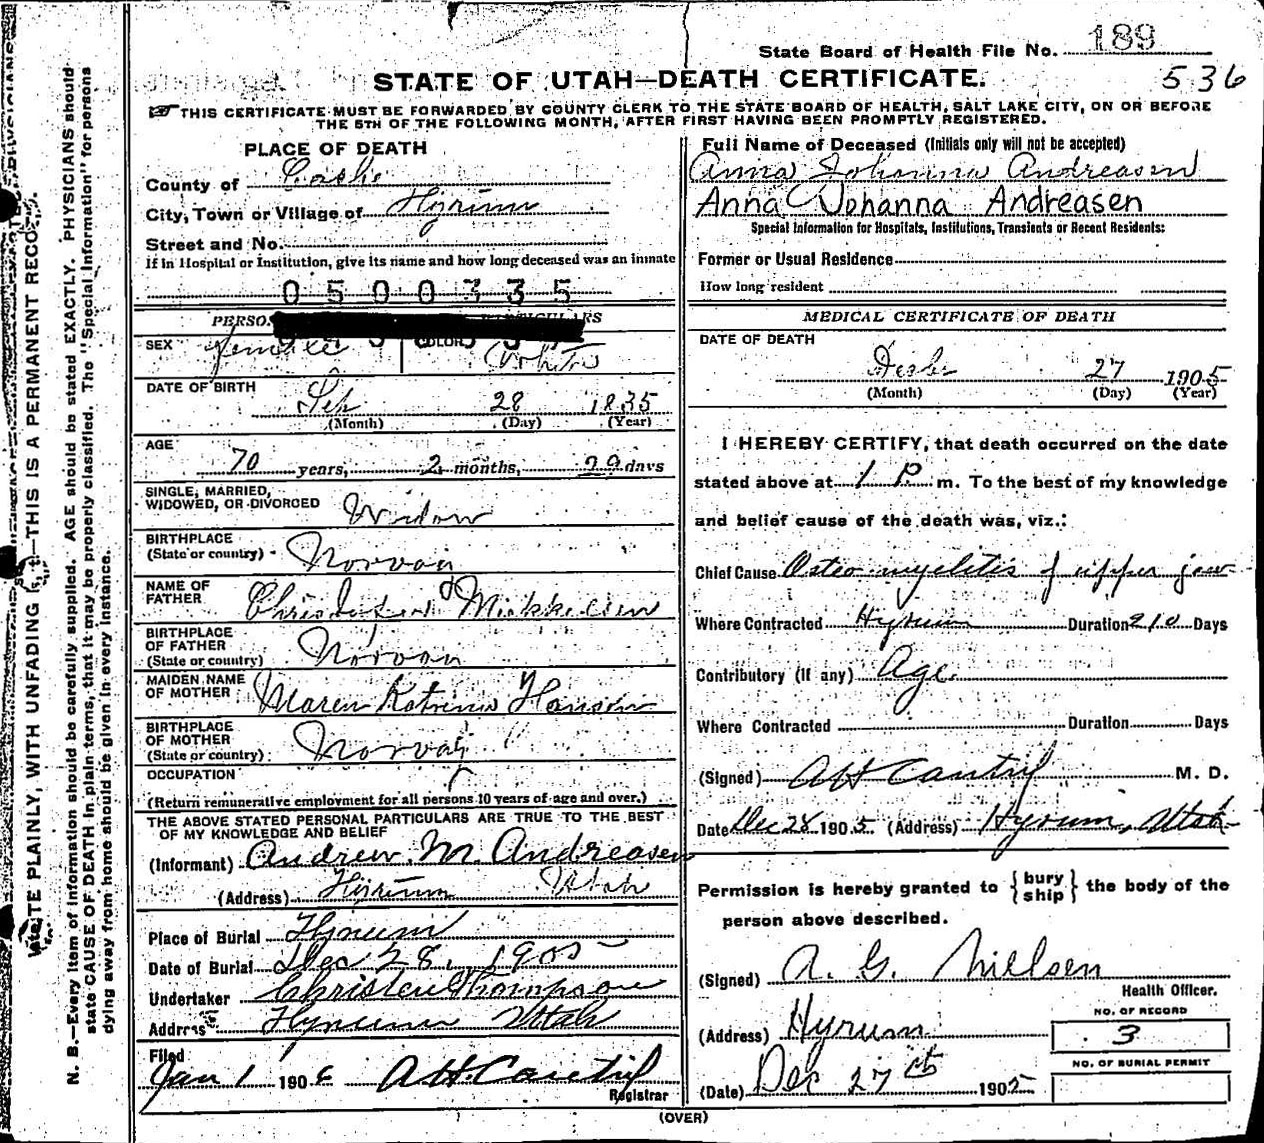 State Board of Health File No. 189
STATE OF UTAH—DEATH CERTIFICATE.
536
THIS CERTIFICATE MUST BE FORWARDED BY COUNTY CLERK TO THE STATE BOARD OF HEALTH, SALT LAKE CITY, ON OR BEFORE
THE 5TH OF THE FOLLOWING MONTH, AFTER FIRST HAVING BEEN PROMPTLY REGISTERED.
PLACE OF DEATH
County of Cache
City, Town or Village of Hyrum
Street and No.
If in Hospital or Institution, give its name and how long deceased was an inmate
0500335
Full Name of Deceased (Initials only will not be accepted)
Anna Johanna Andreasen
Anna Johanna Andreasen
Special Information for Hospitals, Institutions, Transients or Recent Residents:
Former or Usual Residence
How long resident
SEX Female COLOR White
DATE OF BIRTH
28 1835
(Month) (Day) (Year)
AGE
70 years, 2 months, 29 days
SINGLE, MARRIED,
WIDOWED, OR DIVORCED Widow
BIRTHPLACE
(State or country) Norvay
NAME OF
FATHER Mikkelsen
BIRTHPLACE
OF FATHER
(State or country) Norvay
MAIDEN NAME
OF MOTHER Maren Katrina Hanson
BIRTHPLACE
OF MOTHER
(State or country) Norvay
OCCUPATION
(Return remunerative employment for all persons 10 years of age and over.)
THE ABOVE STATED PERSONAL PARTICULARS ARE TRUE TO THE BEST
OF MY KNOWLEDGE AND BELIEF
(Informant) Andrew M. Andreasen
(Address) Hyrum Utah
Place of Burial Hyrum
Date of Burial Dec 28, 1905
Undertaker Christen Thompson
Address Hyrum Utah
Filed
Jan 1 1906 A H. Cantril
Registrar
MEDICAL CERTIFICATE OF DEATH
DATE OF DEATH
27 1905
(Month) (Day) (Year)
I HEREBY CERTIFY, that death occurred on the date
stated above at 1 P. m. To the best of my knowledge
and belief cause of the death was, viz.:
Chief Cause Osteo myelitis of upper jaw
Where Contracted Hyrum Duration 210 Days
Contributory (If any) Age.
Where Contracted Duration Days
(Signed) A H Cantril M. D.
Date Dec 28 1905. (Address) Hyrum, Utah
Permission is hereby granted to {bury
ship} the body of the
person above described.
(Signed) A. G. Nillsen
Health Officer.
(Address) Hyrum
(Date) Dec 27th 1905
NO. OF RECORD
3
NO. OF BURIAL PERMIT
(OVER)
PLAINLY, WITH UNFADING THIS IS A PERMANENT RECORD.
N. B.—Every item of information should be carefully supplied. AGE should be stated EXACTLY. PHYSICIANS should
state CAUSE OF DEATH in plain terms, that it may be properly classified. The "Special Information" for persons
dying away from home should be given in every instance.